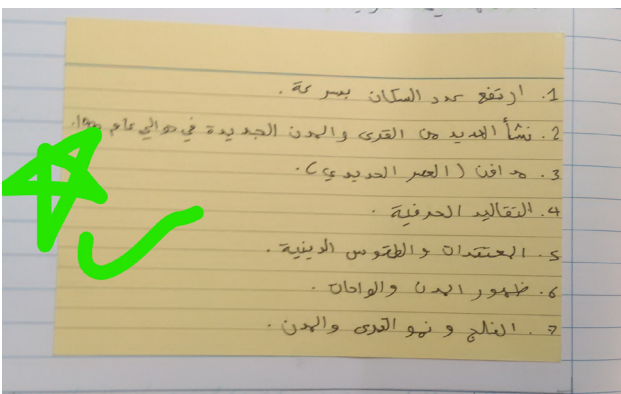 1. ارتفع عدد السكان بسرعة.
2. نشأ العديد من القرى والمدن الجديدة في حوالي عام
3. مدافن (العصر الحديدي).
4. التقاليد الحرفية.
5. المعتقدات والطقوس الدينية.
6. ظهور المدن والواحات.
7. الفلج و نمو القرى والمدن.